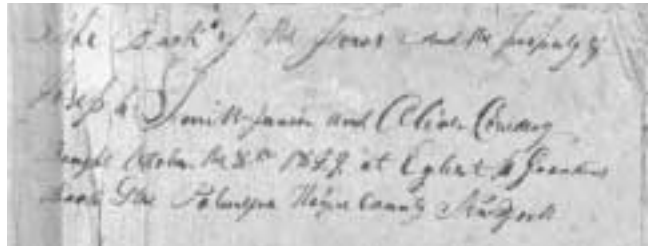 The Book of the Jews and the property of
Joseph Smith Junior and Oliver Cowdery
Bought October the 8th 1829 at Egbert B Grandins
Book Store Palmyra Wayne County New York